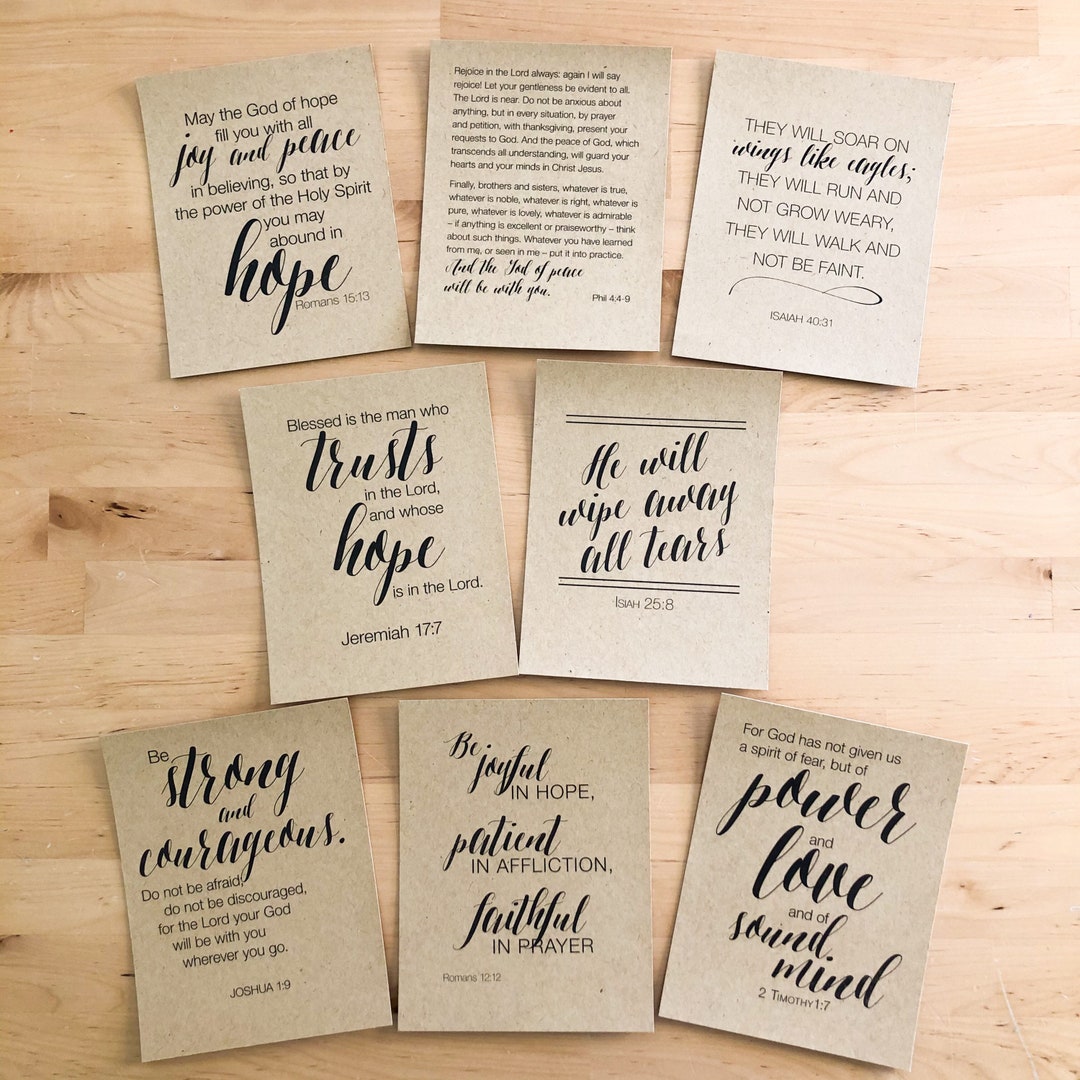 May the God of hope
fill you with all
joy and peace
in believing, so that by
the power of the Holy Spirit
you may
abound in
hope
Romans 15:13
Rejoice in the Lord always: again I will say
rejoice! Let your gentleness be evident to all.
The Lord is near. Do not be anxious about
anything, but in every situation, by prayer
and petition, with thanksgiving, present your
requests to God. And the peace of God, which
transcends all understanding, will guard your
hearts and your minds in Christ Jesus.
Finally, brothers and sisters, whatever is true,
whatever is noble, whatever is right, whatever is
pure, whatever is lovely, whatever is admirable
– if anything is excellent or praiseworthy – think
about such things. Whatever you have learned
from me, or seen in me – put it into practice.
And the God of peace
will be with you.
Phil 4:4-9
THEY WILL SOAR ON
wings like eagles;
THEY WILL RUN AND
NOT GROW WEARY,
THEY WILL WALK AND
NOT BE FAINT.
ISAIAH 40:31
Blessed is the man who
trusts
in the Lord,
and whose
hope
is in the Lord.
Jeremiah 17:7
He will
wipe away
all tears
ISIAH 25:8
Be
strong
and
courageous.
Do not be afraid;
do not be discouraged,
for the Lord your God
will be with you
wherever you go.
JOSHUA 1:9
Be
joyful
IN HOPE,
patient
IN AFFLICTION,
faithful
IN PRAYER
Romans 12:12
For God has not given us
a spirit of fear, but of
power
and
love
and of
sound
mind
2 TIMOTHY 1:7